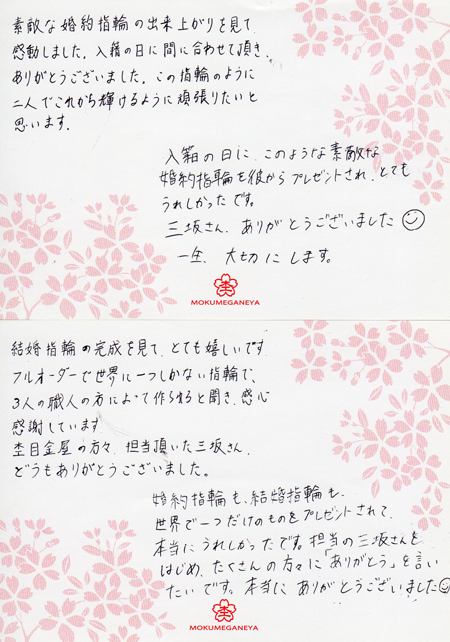 素敵な婚約指輪の出来上がりを見て、
感動しました。入籍の日に間に合わせて頂き、
ありがとうございました。この指輪のように
二人でこれから輝けるように頑張りたいと
思います。
入籍の日に、このような素敵な
婚約指輪を彼からプレゼントされ、とても
うれしかったです。
三坂さん、ありがとうございました
一生、大切にします。
MOKUMEGANEYA
結婚指輪の完成を見て、とても嬉しいです
フルオーダーで世界に一つしかない指輪で、
3人の職人の方によって作られると聞き、感心
感謝しています
杢目金屋の方々、担当頂いた三坂さん、
どうもありがとうございました。
婚約指輪も、結婚指輪も、
世界で一つだけのものをプレゼントされて、
本当にうれしかったです。担当の三坂さんを
はじめ、たくさんの方々に「ありがとう」を言い
たいです。本当にありがとうございました
MOKUMEGANEYA